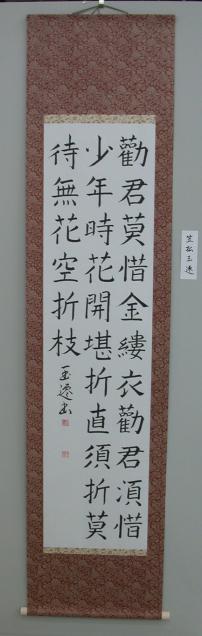 勸君莫惜金縷衣勸君須惜
少年時花開堪折直須折莫
待無花空折枝
玉蓮書